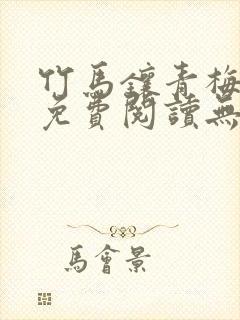 竹馬鑲青梅
免費閱讀無
馬會景